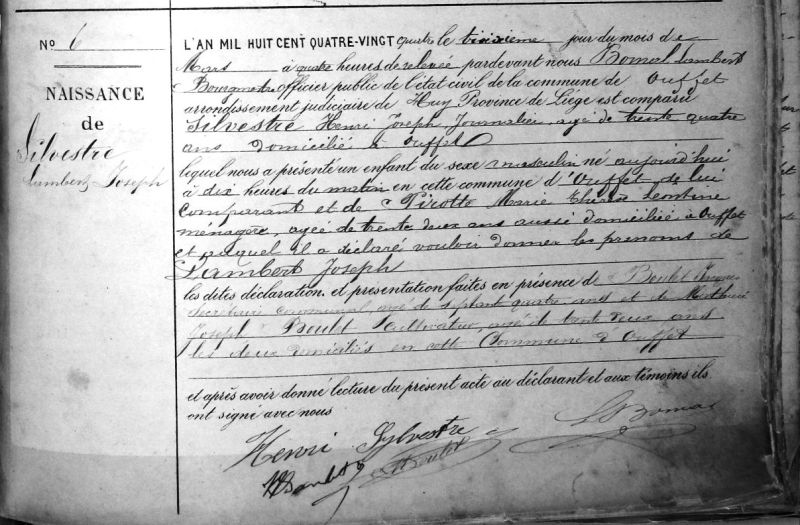 No 6
NAISSANCE
de
Silvestre
Lambert Joseph
L'AN MIL HUIT CENT QUATRE-VINGT quatre le jour du mois de
Mars à quatre heures de relevée pardevant nous Bomal Lambert
Bourgmestre officier public de l'état civil de la commune de Ouffet
arrondissement judiciaire de Huy Province de Liége est comparu
Silvestre Henri Joseph, Journalier, agé de trente quatre
ans domicilié à Ouffet
lequel nous a présenté un enfant du sexe masculin né aujourd'hui
à dix heures du matin en cette commune d'Ouffet de lui
comparant et de Pirotte Marie Thérèse Leontine
ménagère, agée de trente deux ans aussi domiciliée à Ouffet
et auquel il a déclaré vouloir donner les prénoms de
Lambert Joseph
les dites déclaration et présentation faites en présence de Boulet
secrétaire communal, agé de septante quatre ans et de
Joseph Boulet cultivateur, agé de trente deux ans
les deux domiciliés en cette Commune d'Ouffet
et après avoir donné lecture du présent acte au déclarant et aux témoins ils
ont signé avec nous
Henri Sylvestre
L Bomal
Boulet